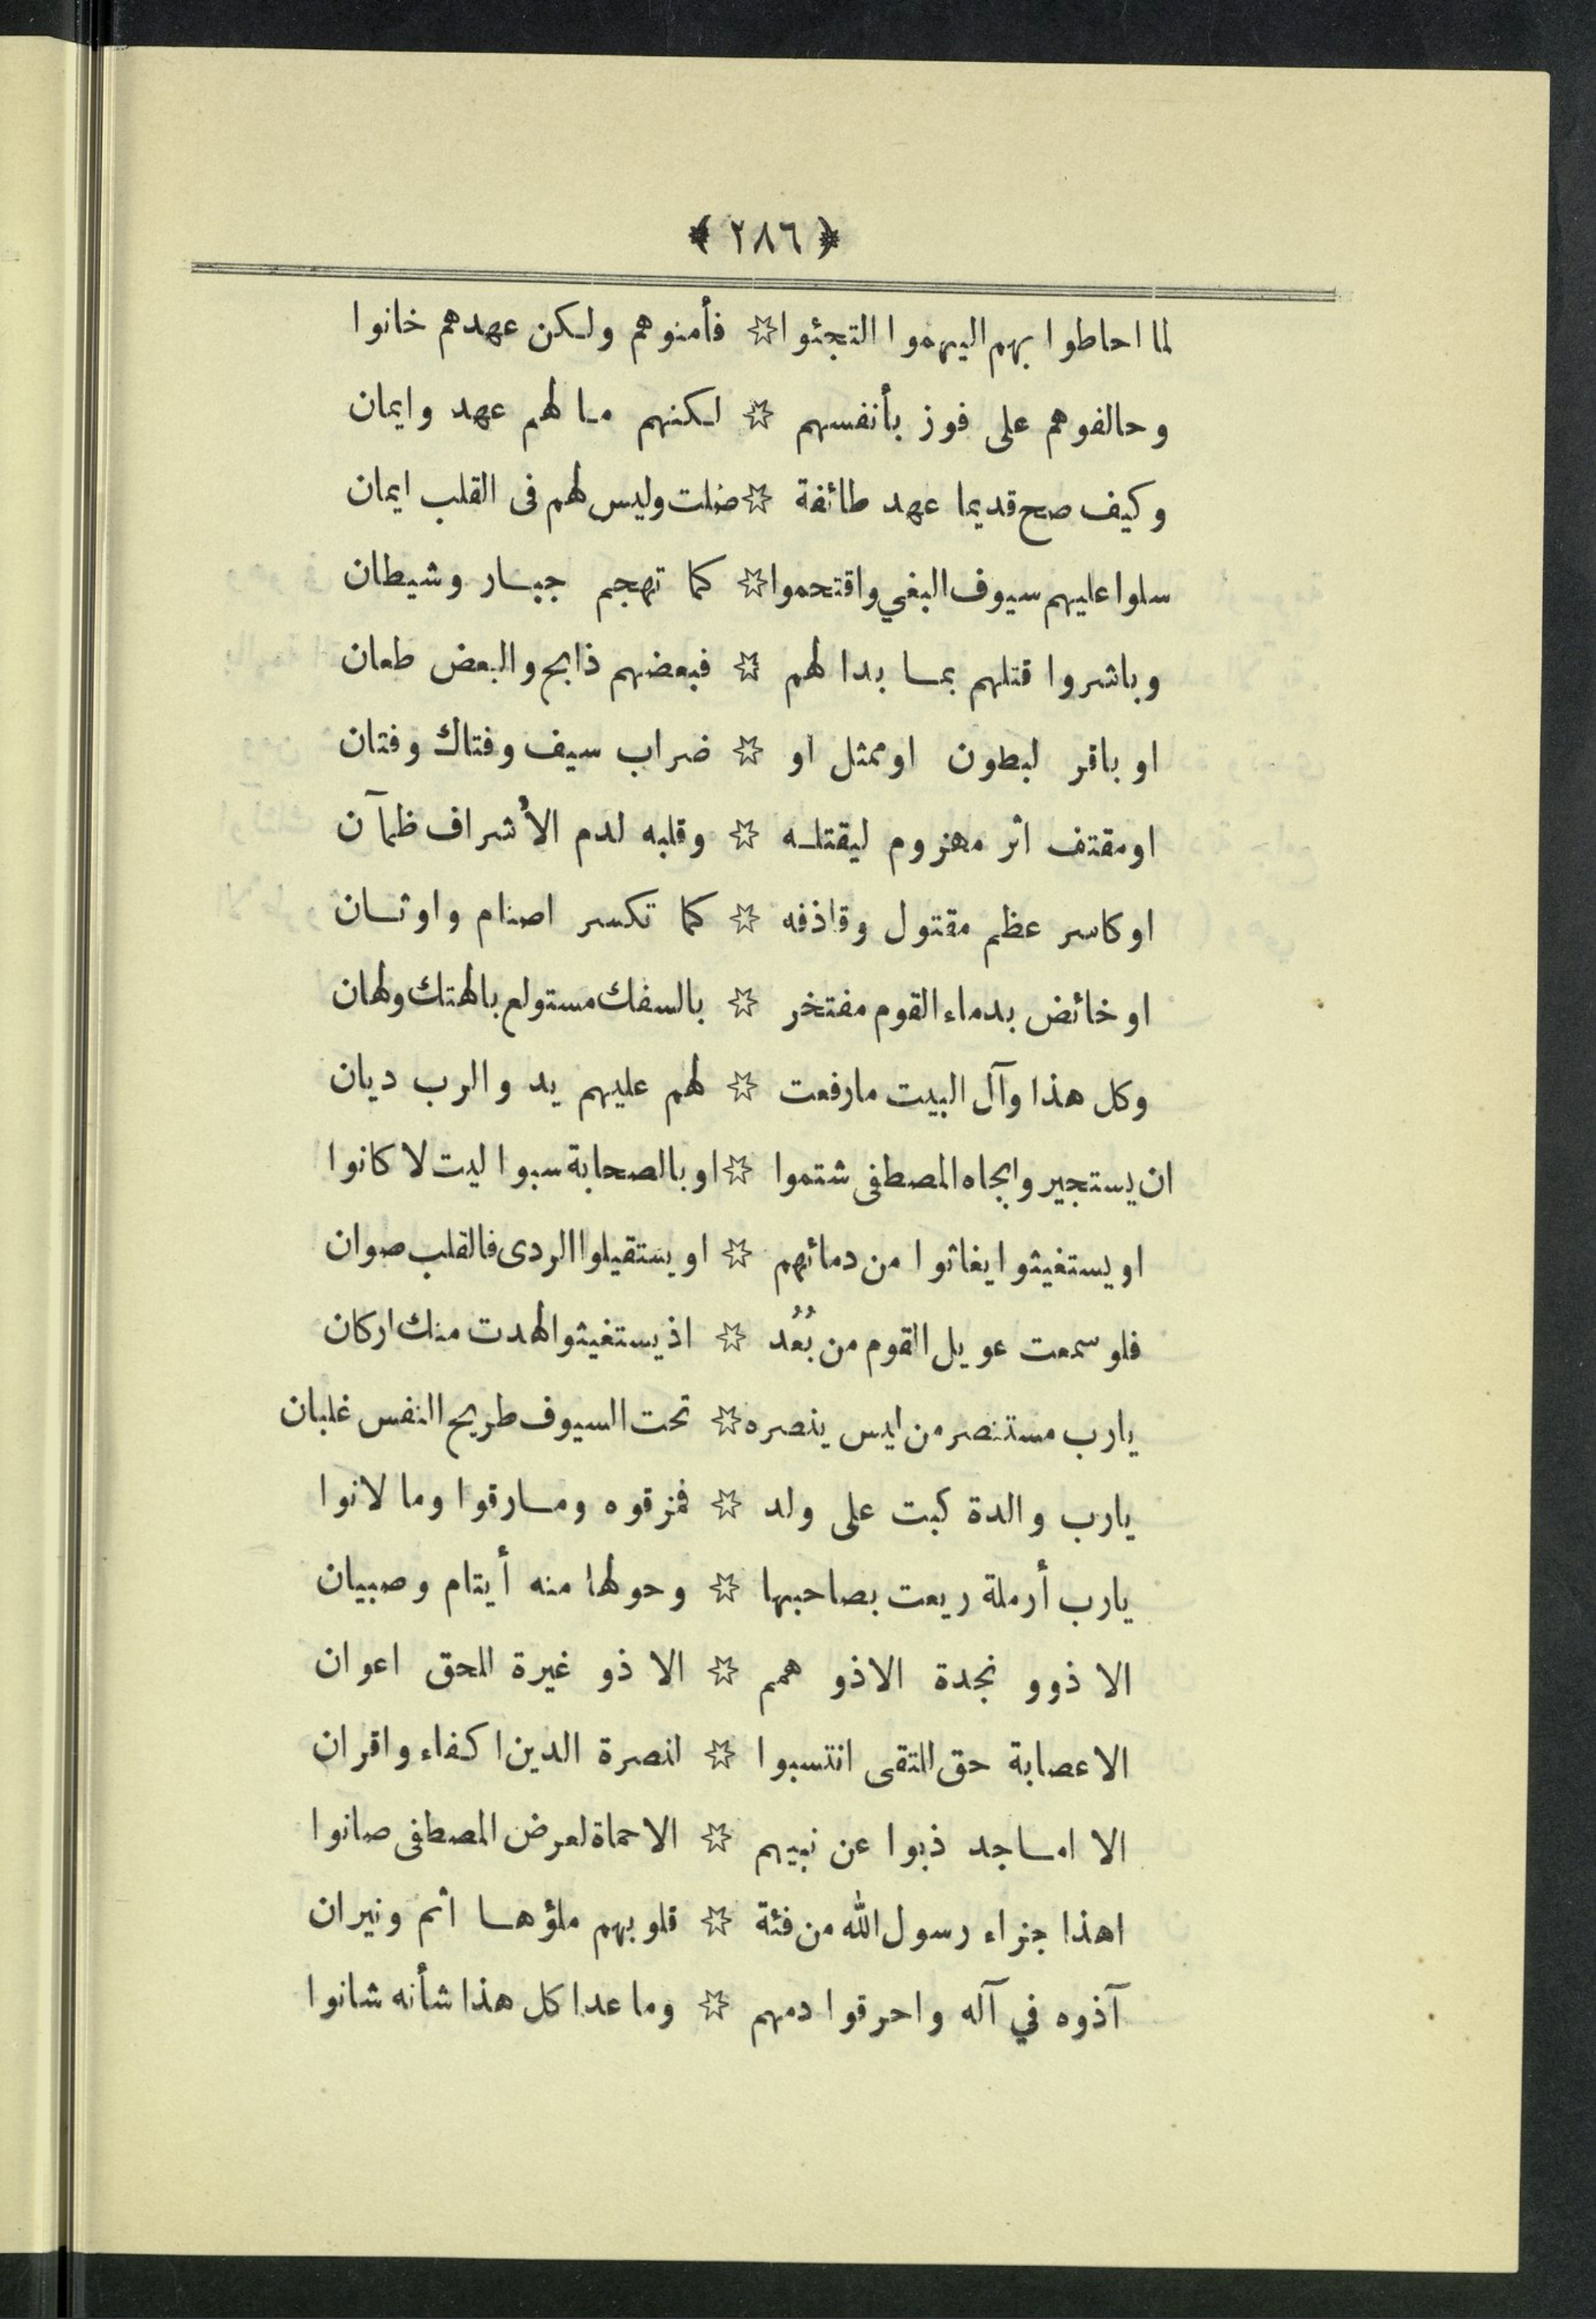 ﴿ ٢٨٦ ﴾
لما احاطوا بهم اليهموا التجئوا ☆ فأمنوهم ولكن عهدهم خانوا
وحالفوهم على فوز بأنفسهم ☆ لكنهم ما لهم عهد وايمان
وكيف صح قديما عهد طائفة ☆ ضلت وليس لهم فى القلب ايمان
سلوا عليهم سيوف البغي واقتحموا ☆ كما تهجم جبار وشيطان
وباشروا قتلهم بما بدا لهم ☆ فبعضهم ذابح والبعض طعان
او باقر لبطون او ممثل او ☆ ضراب سيف وفتاك وفتان
او مقتف اثر مهزوم ليقتله ☆ وقلبه لدم الأشراف ظمآن
او كاسر عظم مقتول وقاذفه ☆ كما تكسر اصنام واوثان
او خائض بدماء القوم مفتخر ☆ بالسفك مستولع بالهتك ولهان
وكل هذا وآل البيت مارفعت ☆ لهم عليهم يد والرب ديان
ان يستجيروا بجاه المصطفى شتموا ☆ او بالصحابة سبوا ليت لا كانوا
او يستغيثوا يغاثوا من دمائهم ☆ او يستقيلوا الردى فالقلب صوان
فلو سمعت عويل القوم من بُعُد ☆ اذ يستغيثوا لهدت منك اركان
يارب مستنصر من ليس ينصره ☆ تحت السيوف طريح النفس غلبان
يارب والدة كبت على ولد ☆ فمزقوه ومارقوا وما لانوا
يارب أرملة ريعت بصاحبها ☆ وحولها منه أيتام وصبيان
الا ذوو نجدة الاذو همم ☆ الا ذو غيرة للحق اعوان
الا عصابة حق للتقى انتسبوا ☆ لنصرة الدين اكفاء واقران
الا اماجد ذبوا عن نبيهم ☆ الا حماة لعرض المصطفى صانوا
اهذا جزاء رسول الله من فئة ☆ قلوبهم ملؤها اثم ونيران
آذوه في آله واحرقوا دمهم ☆ وما عدا كل هذا شأنه شانوا